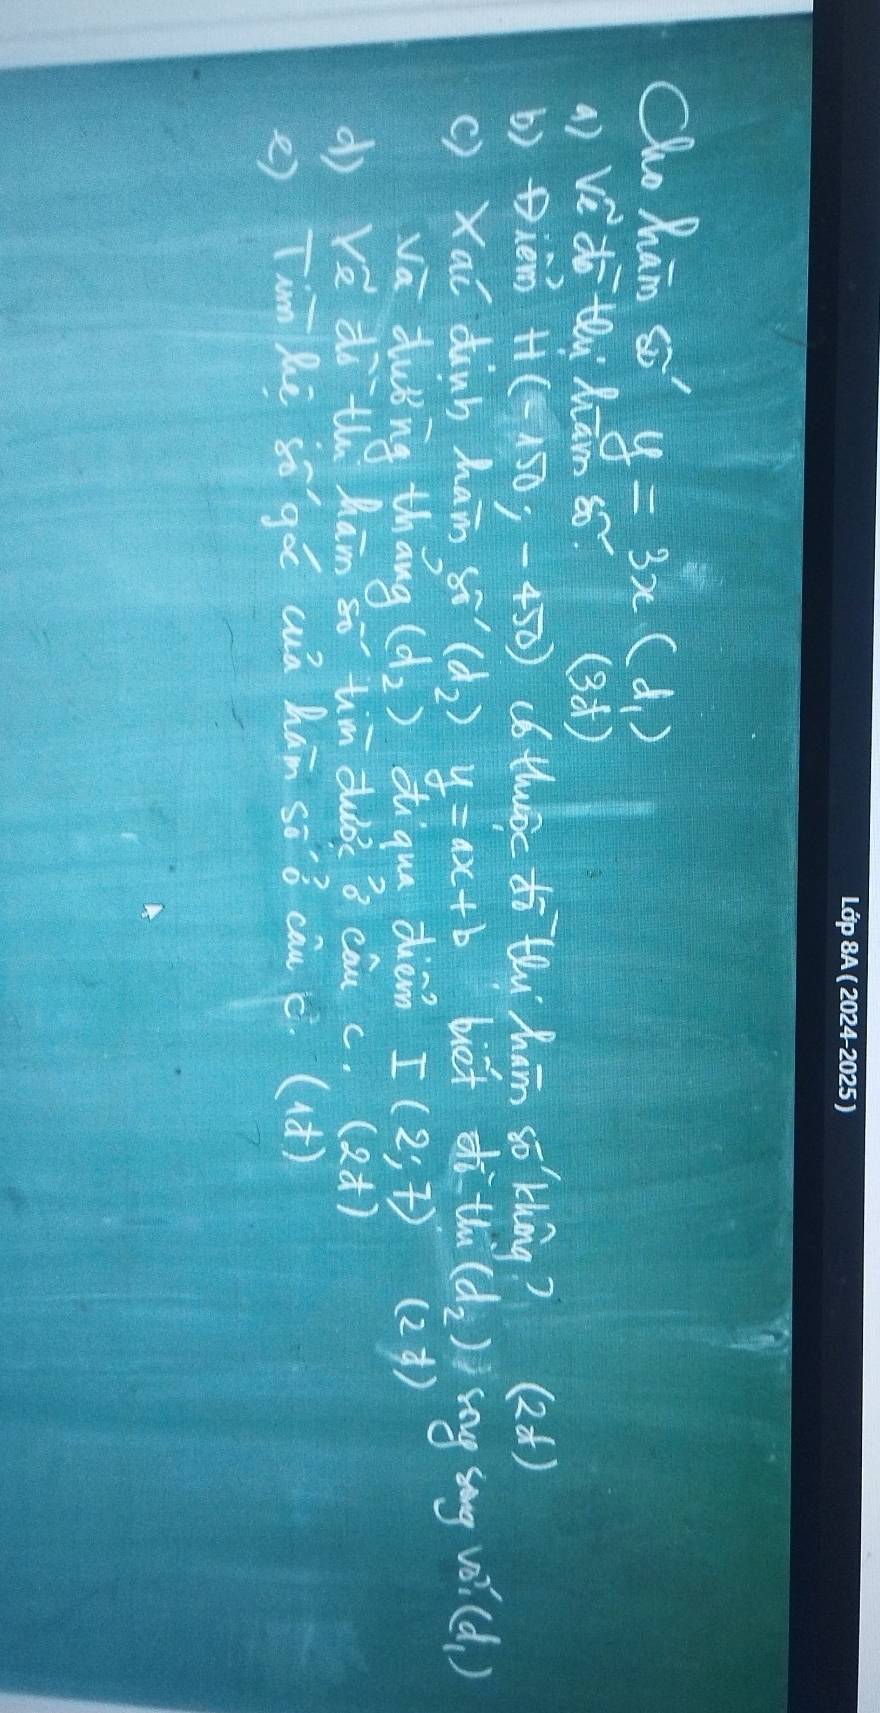 Lớp 8A ( 2024-2025 )
Cho hàm số y = 3x (d₁)
a) Vẽ đồ thị hàm số. (3đ)
b) Điểm H(-150; -450) có thuộc đồ thị hàm số không? (2đ)
c) Xác định hàm số (d₂) y = ax+b biết đồ thị (d₂) song song với (d₁)
và đường thẳng (d₂) đi qua điểm I (2; 7) (2đ)
d) Vẽ đồ thị hàm số tìm được ở câu c. (2đ)
e) Tìm hệ số góc của hàm số ở câu c. (1đ)